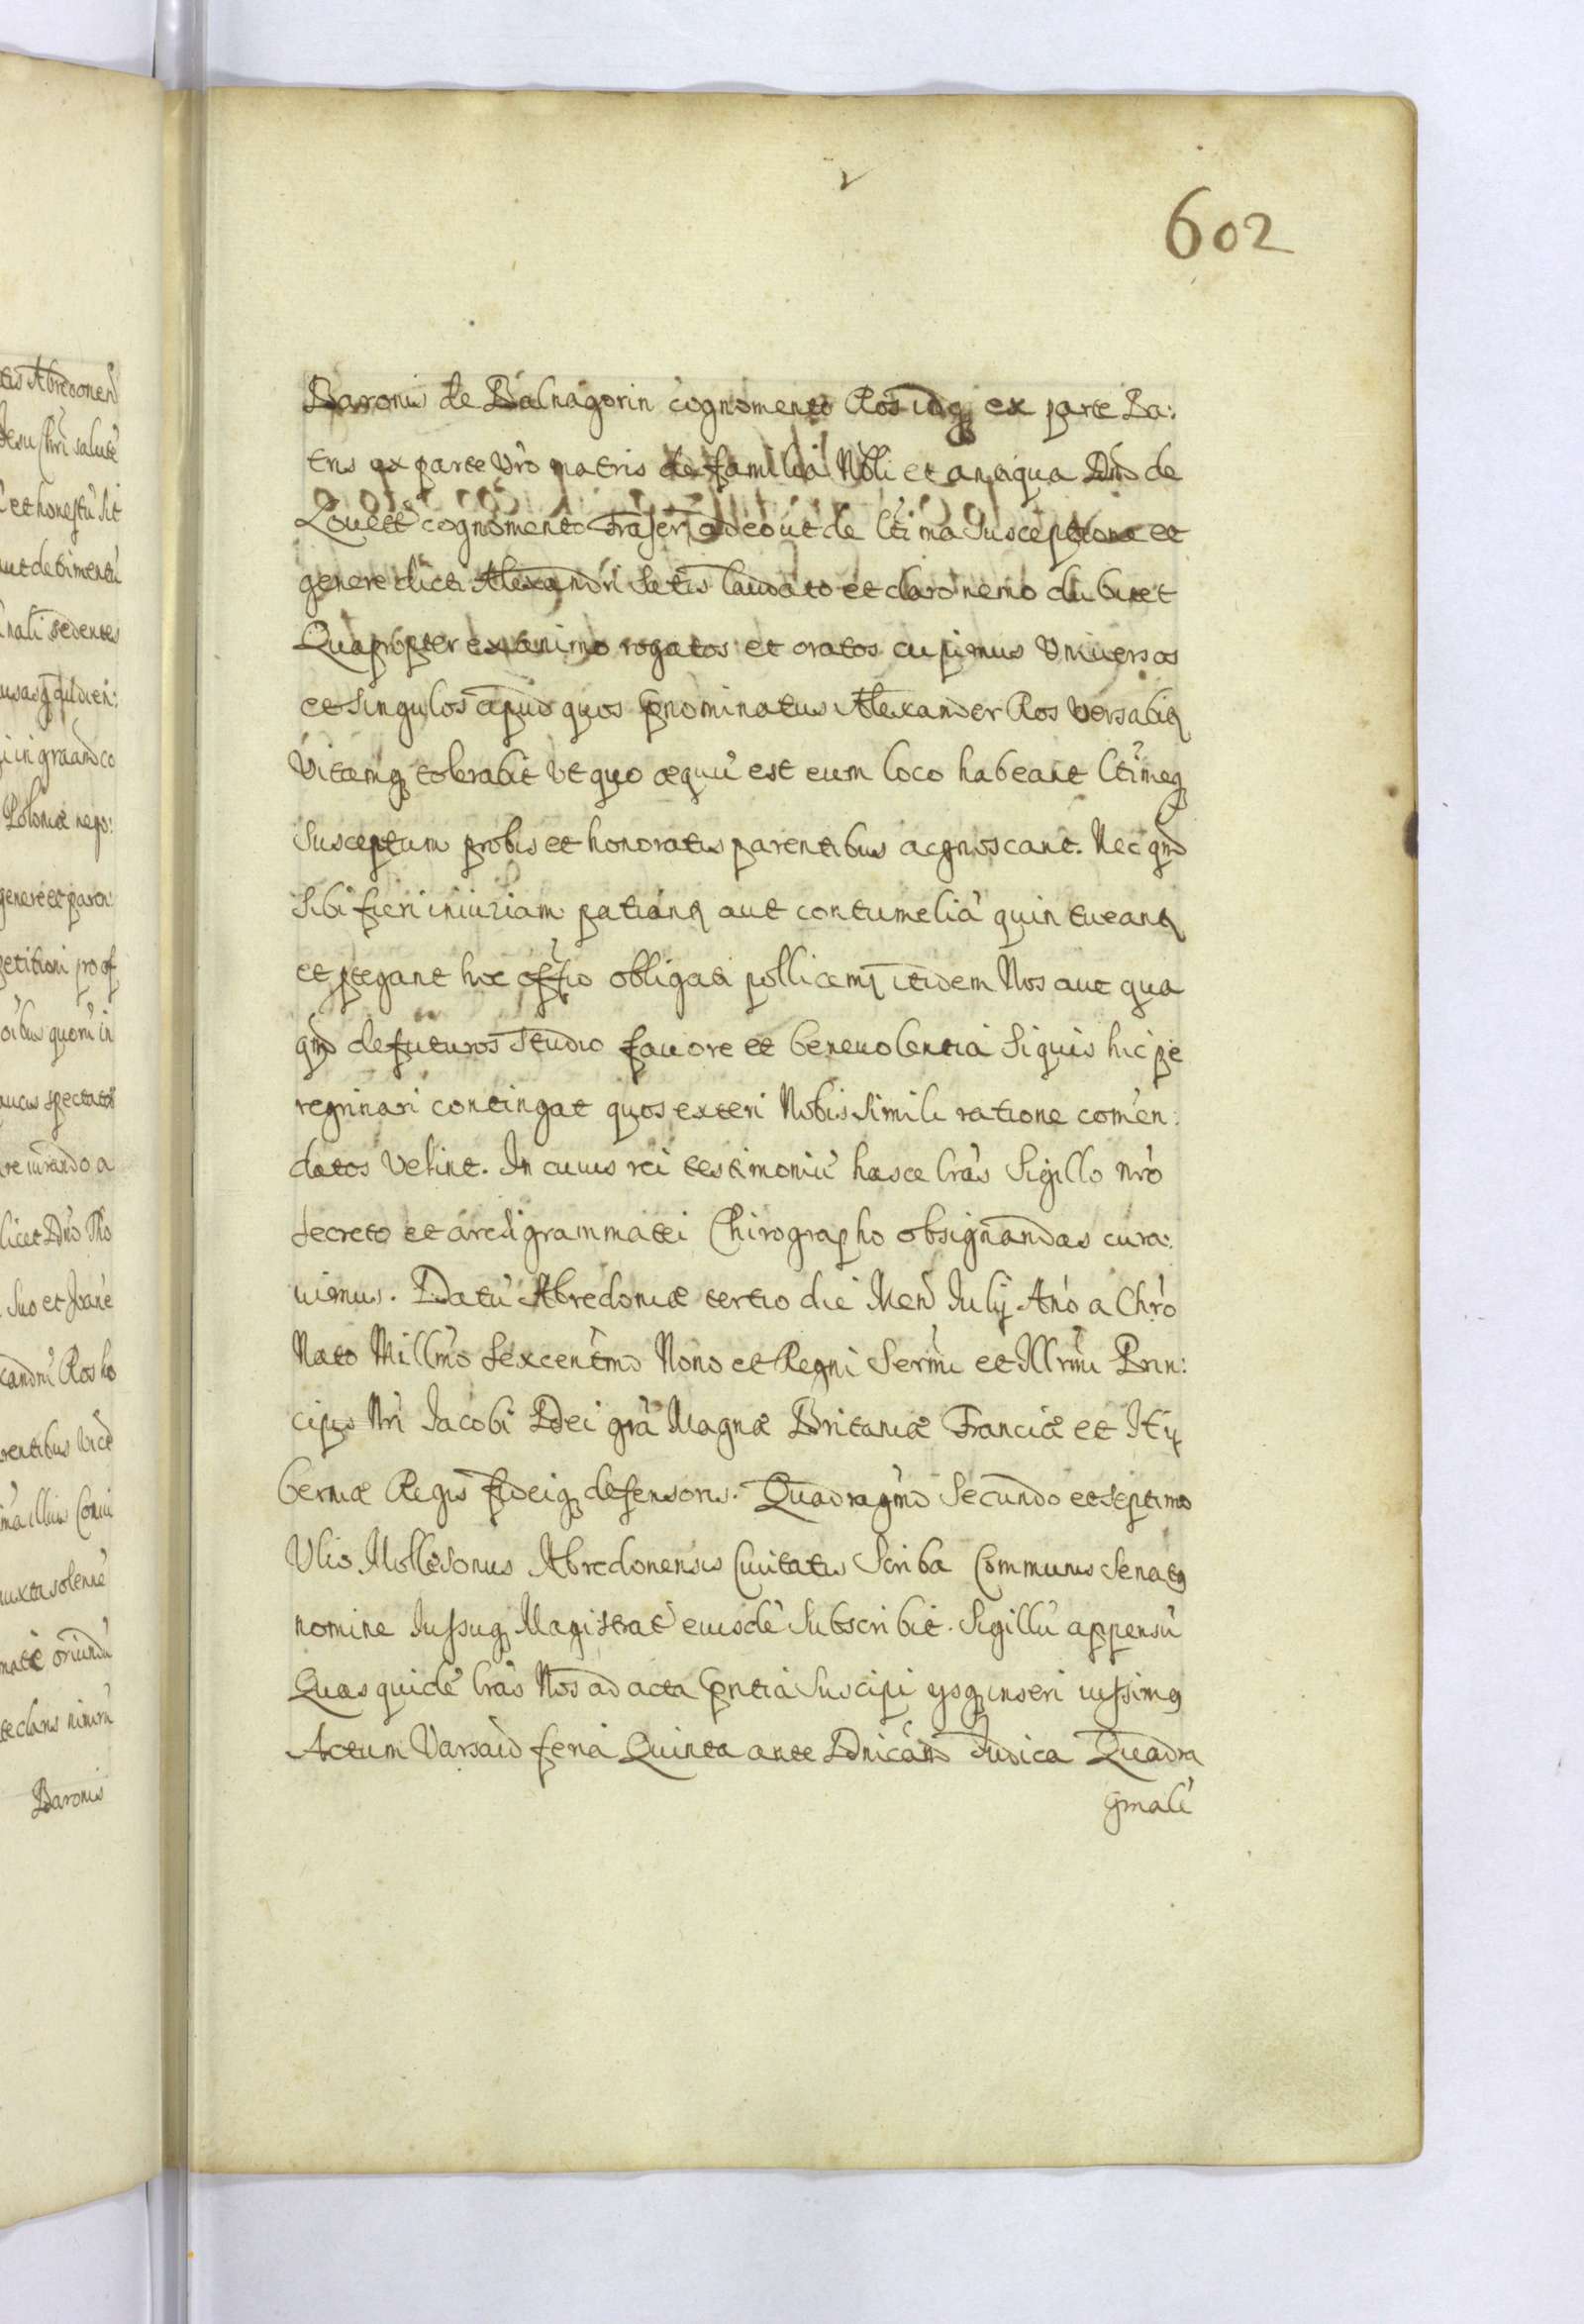 602
Baronis de Balnagorin cognomento Ros idq ex parte Pa:
tris ex parte Vrò matris de familia Nobli et antiqua Dnò de
Louett cognomento Fraser, adeo ut de ltima Susceptione et
genere dicti Alexandri Satis laudato et claro nemo dubitet
Quapropter ex animo rogatos et oratos cupimus Vniuersos
et Singulos apud quos pnominatus Alexander Ros versabitq
Vitamq tolerabit Vt quo æquù est eum loco habeant ltimeq
Susceptum probis et honoratis parentibus agnoscant. Nec qnd
Sibi fieri iniuriam patiantq aut contumelià quin tueantq
et ptegant hoc offio obligati pollicemq itidem Nos aut qua
qnd defuturos Studio fauore et beneuolentia Si quis hic pe
regrinari contingat quos exteri Nobis simili ratione comèn:
datos Velint. In cuius rei testimoniù hasce lràs Sigillo nrò
Secreto et archigrammatei Chirographo obsignandas cura:
uimus. Datù Abredoniæ tertio die Men Julij Anò a Chrò
Nato Millmò Sexcentmò Nono et Regni Sermi et Illrmi Prin:
cipis Nri Jacobi Dei grà Magnæ Britaniæ Franciæ et Hy
berniæ Regis fideiq defensoris. Quadragmò Secundo et Septimo
Vlis Mollesonus Abredonensis Ciuitatis Scriba Communis Senatq
nomine Jussuq Magistrat eiusdè Subscribit. Sigillù appensù
Quas quidè lràs Nos ad acta pntia Suscipi ysq inseri iussimq
Actum Varsaid feria Quinta ante Dnicàm Judica Quadra
gmalè